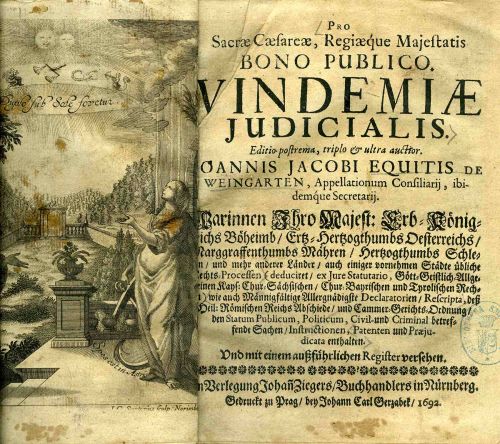 PRO
Sacræ Cæsareæ, Regiæque Majestatis
BONO PUBLICO.
VINDEMIÆ
JUDICIALIS.
Editio postrema, triplo & ultra auctior.
OANNIS JACOBI EQUITIS DE
WEINGARTEN, Appellationum Consiliarij, ibi-
demque Secretarij.
Darinnen Ihro Majest: Erb-König-
reichs Böheimb / Ertz-Hertzogthumbs Oesterreichs /
Marggraffenthumbs Mähren / Hertzogthumbs Schle-
en / und mehr anderer Länder / auch einiger vornehmen Städte übliche
Rechts-Processen deduciret / ex Jure Statutario, Gött-Geistlich-Allge-
meinen Kayf: Chur-Sächsischen / Chur-Bayrischen und Tyrolischen Rech-
) wie auch Männigfältige Allergnädigste Declaratorien / Rescripta, deß
Heil: Römischen Reichs Abschiede / und Cammer-Gerichts-Ordnung /
den Statum Publicum, Politicum, Civil-und Criminal betref-
fende Sachen / Instructionen, Patenten und Præju-
dicata enthalten.
Und mit einem außführlichen Register versehen.
n Verlegung Johañ Ziegers / Buchhandlers in Nürnberg.
Gedruckt zu Prag / bey Johann Carl Gerzabek / 1692.
sub Sole
sculp. Norimb